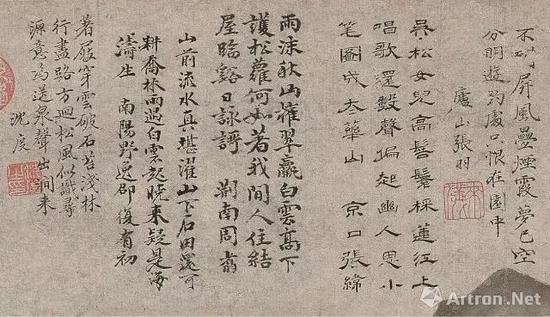 不屏風疊煙霞夢已空
分明遊釣處只恨在圖中
廬山張明
吳松女兒高髻鬟採蓮江上
唱歌還數聲偏起幽人思小
筆圖成太華山 京口張緯
雨沐秋山濯翠嬴白雲高下
護松蘿何如著我閒人住結
屋臨谿日詠謌 荊南周翥
山前流水真堪濯山下石田還可
耕喬林雨過白雲起曉來疑是海
濤生 南陽野逸郎復有初
著屐穿雲破石苔淺林
行盡路方迴松風似識尋
源意為送泉聲出澗来
沈
Artron.Net